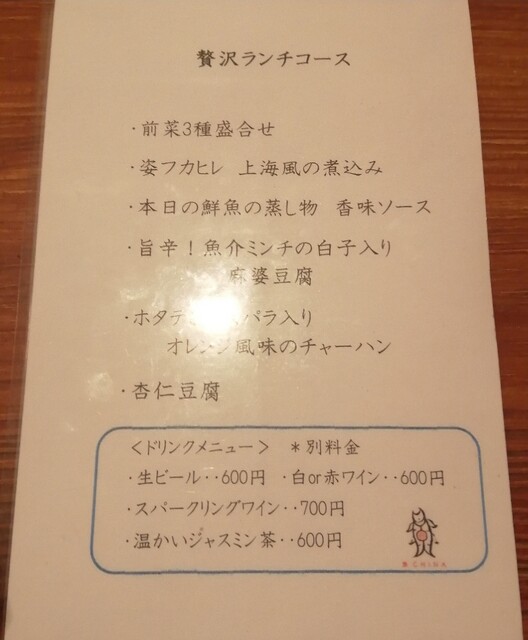 贅沢ランチコース
・前菜3種盛合せ
・姿フカヒレ 上海風の煮込み
・本日の鮮魚の蒸し物 香味ソース
・旨辛！魚介ミンチの白子入り
麻婆豆腐
・ホタテ パラ入り
オレンジ風味のチャーハン
・杏仁豆腐
＜ドリンクメニュー＞ ＊別料金
・生ビール‥600円 ・白or赤ワイン‥600円
・スパークリングワイン‥700円
・温かいジャスミン茶‥600円
CHINA